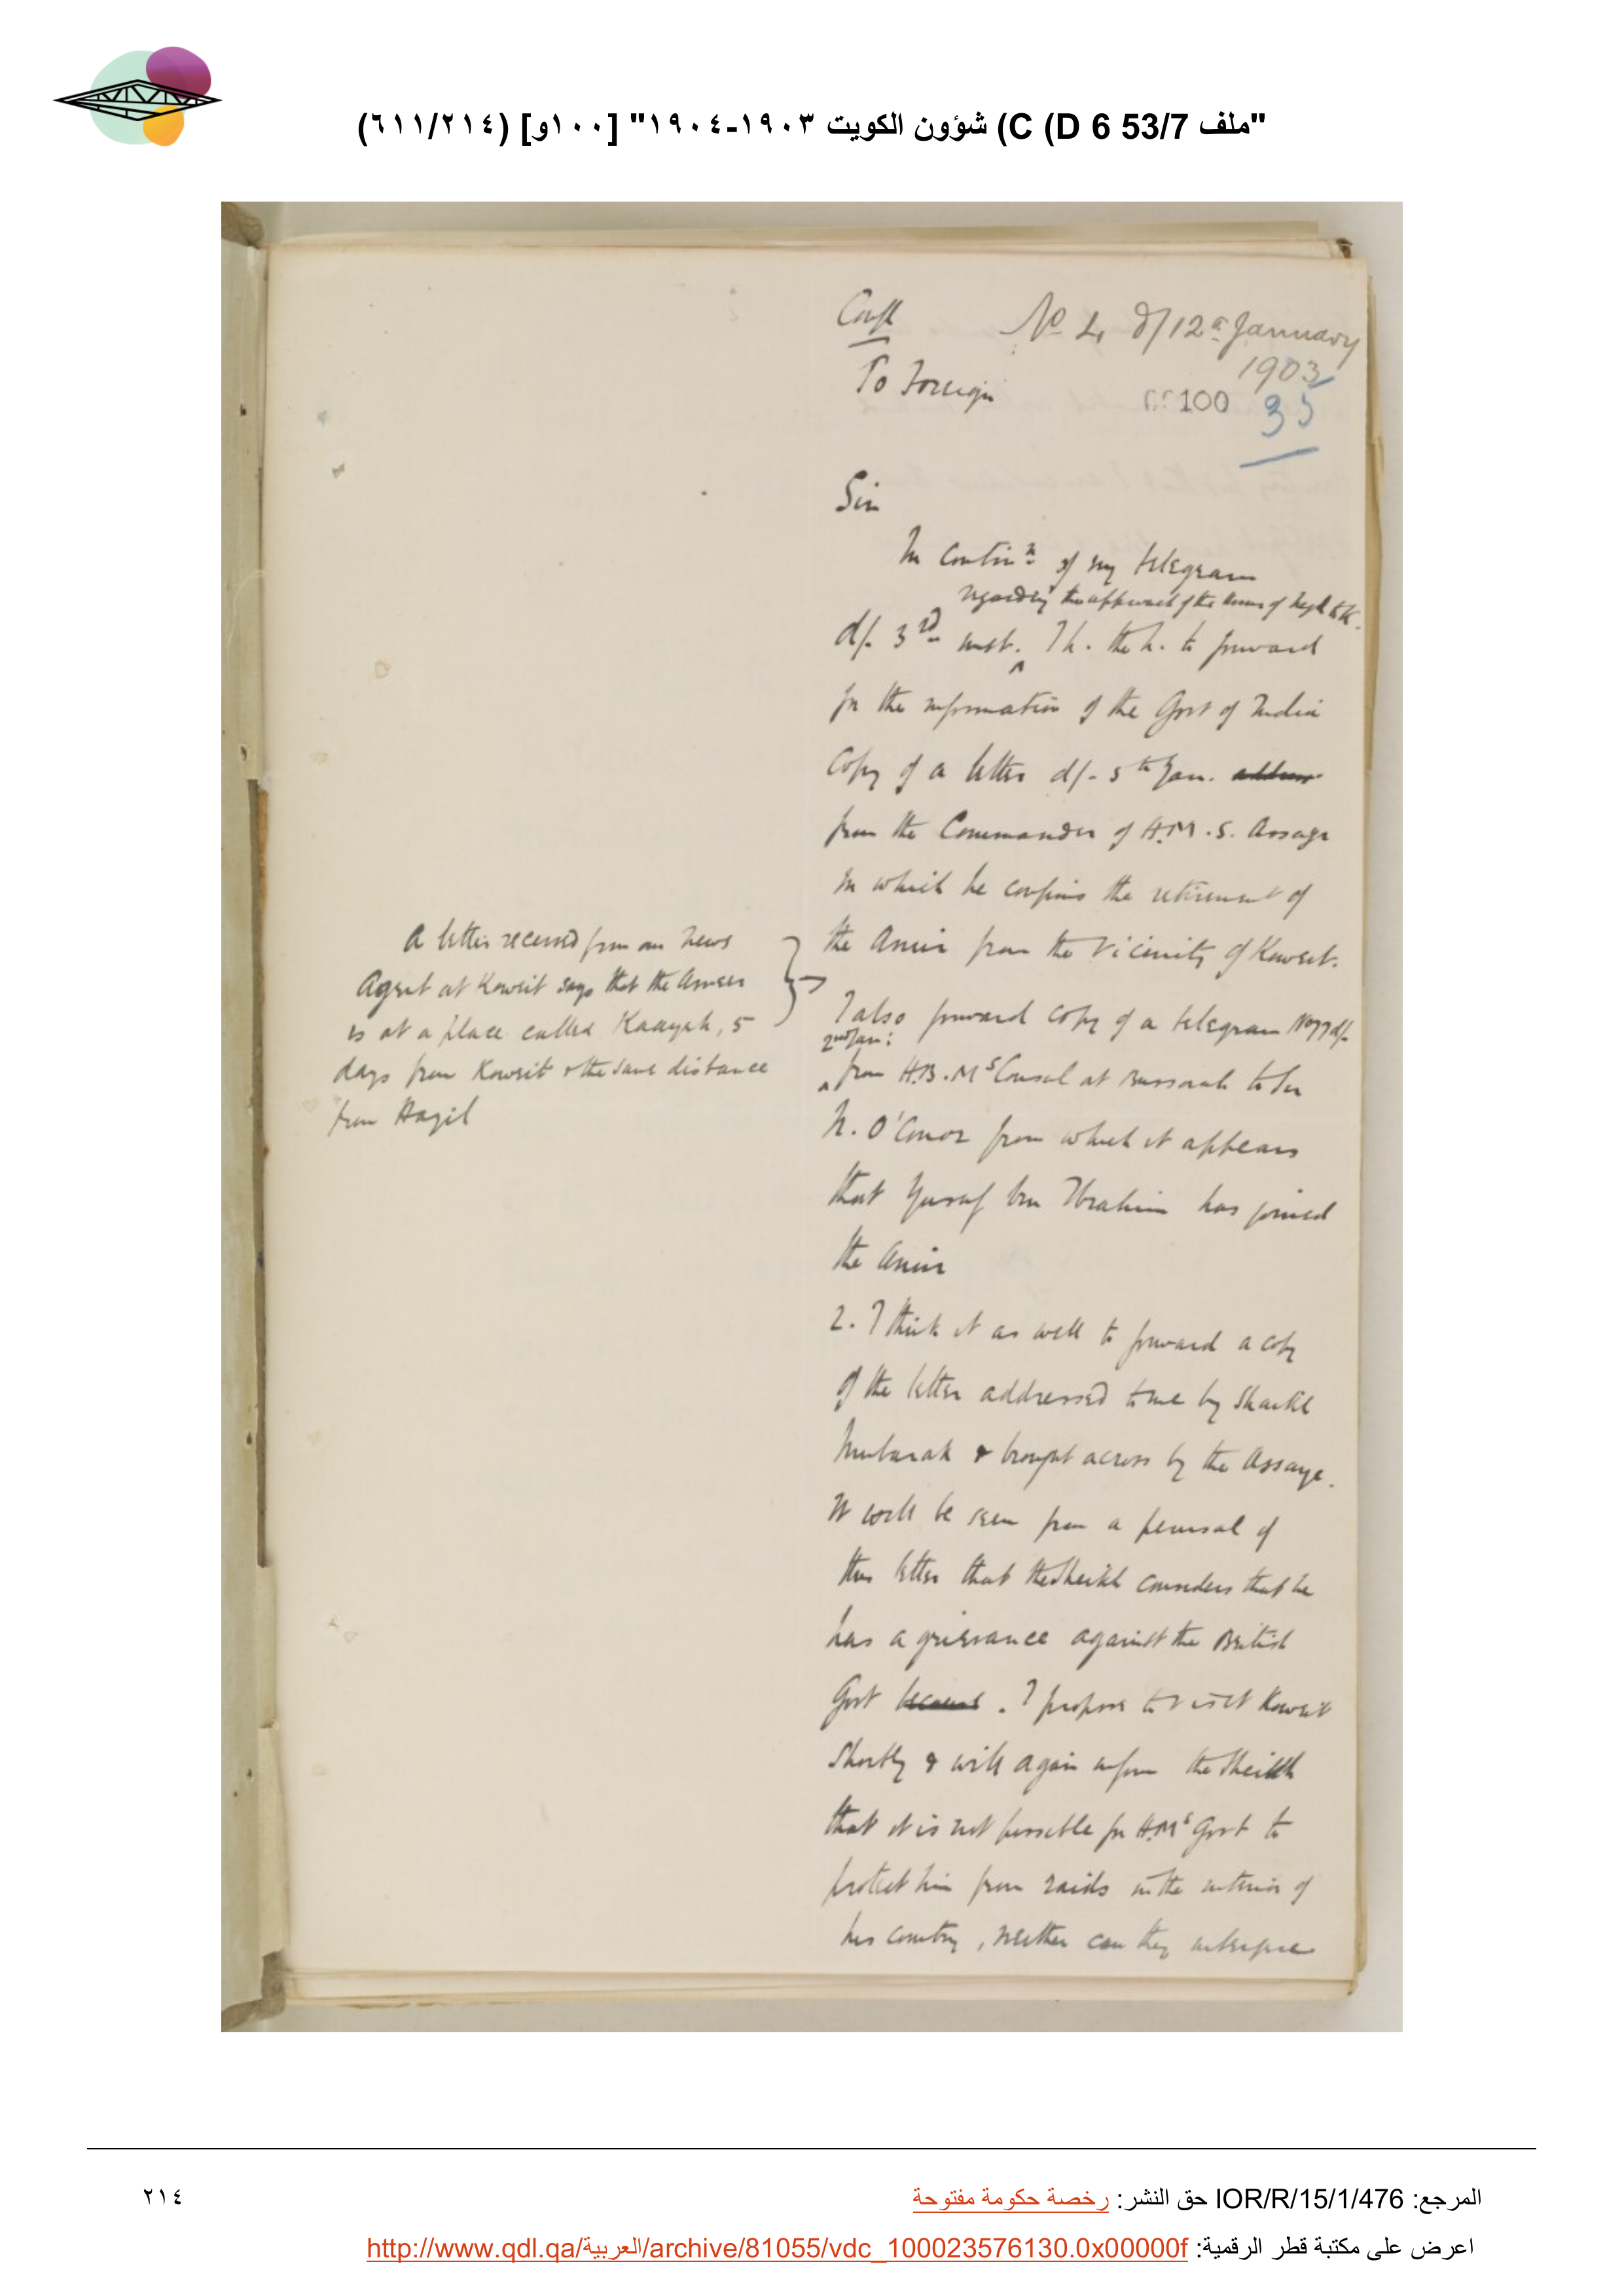 "ملف 53/7 C (D 6) شؤون الكويت ١٩٠٣-١٩٠٤" [١٠٠و] (٦١١/٢١٤)
Conf
No 4 d/12th January
1903
To Foreign
100
35
Sir
In Contin.n of my telegram
regarding the approach of the Amir of Nejd to K.
d/. 3rd inst. I h. the h. to forward
for the information of the Govt of India
Copy of a letter d/- 5th Jan.
from the Commander of H.M.S. Assaye
in which he confirms the retirement of
the Amir from the vicinity of Koweit.
A letter received from our News
Agent at Koweit says that the Ameer
is at a place called Kaayah, 5
days from Koweit & the same distance
from Hayil
I also forward copy of a telegram No 7 d/-
2nd Jan:
from H.B.M's Consul at Bussorah to Sir
N. O'Conor from which it appears
that Yusuf bin Ibrahim has joined
the Amir
2. I think it as well to forward a copy
of the letter addressed to me by Shaikh
Mubarak & brought across by the Assaye.
It will be seen from a perusal of
this letter that the Sheikh considers that he
has a grievance against the British
Govt because. I propose to visit Koweit
shortly & will again inform the Sheikh
that it is not possible for H.M's Govt to
protect him from raids in the interior of
his country, neither can they interfere
المرجع: IOR/R/15/1/476 حق النشر: رخصة حكومة مفتوحة
٢١٤
اعرض على مكتبة قطر الرقمية: http://www.qdl.qa/العربية/archive/81055/vdc_100023576130.0x00000f